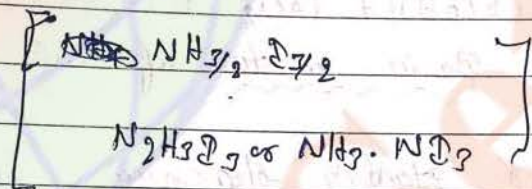 NH3/2 D3/2
N2H3D3 or NH3. ND3